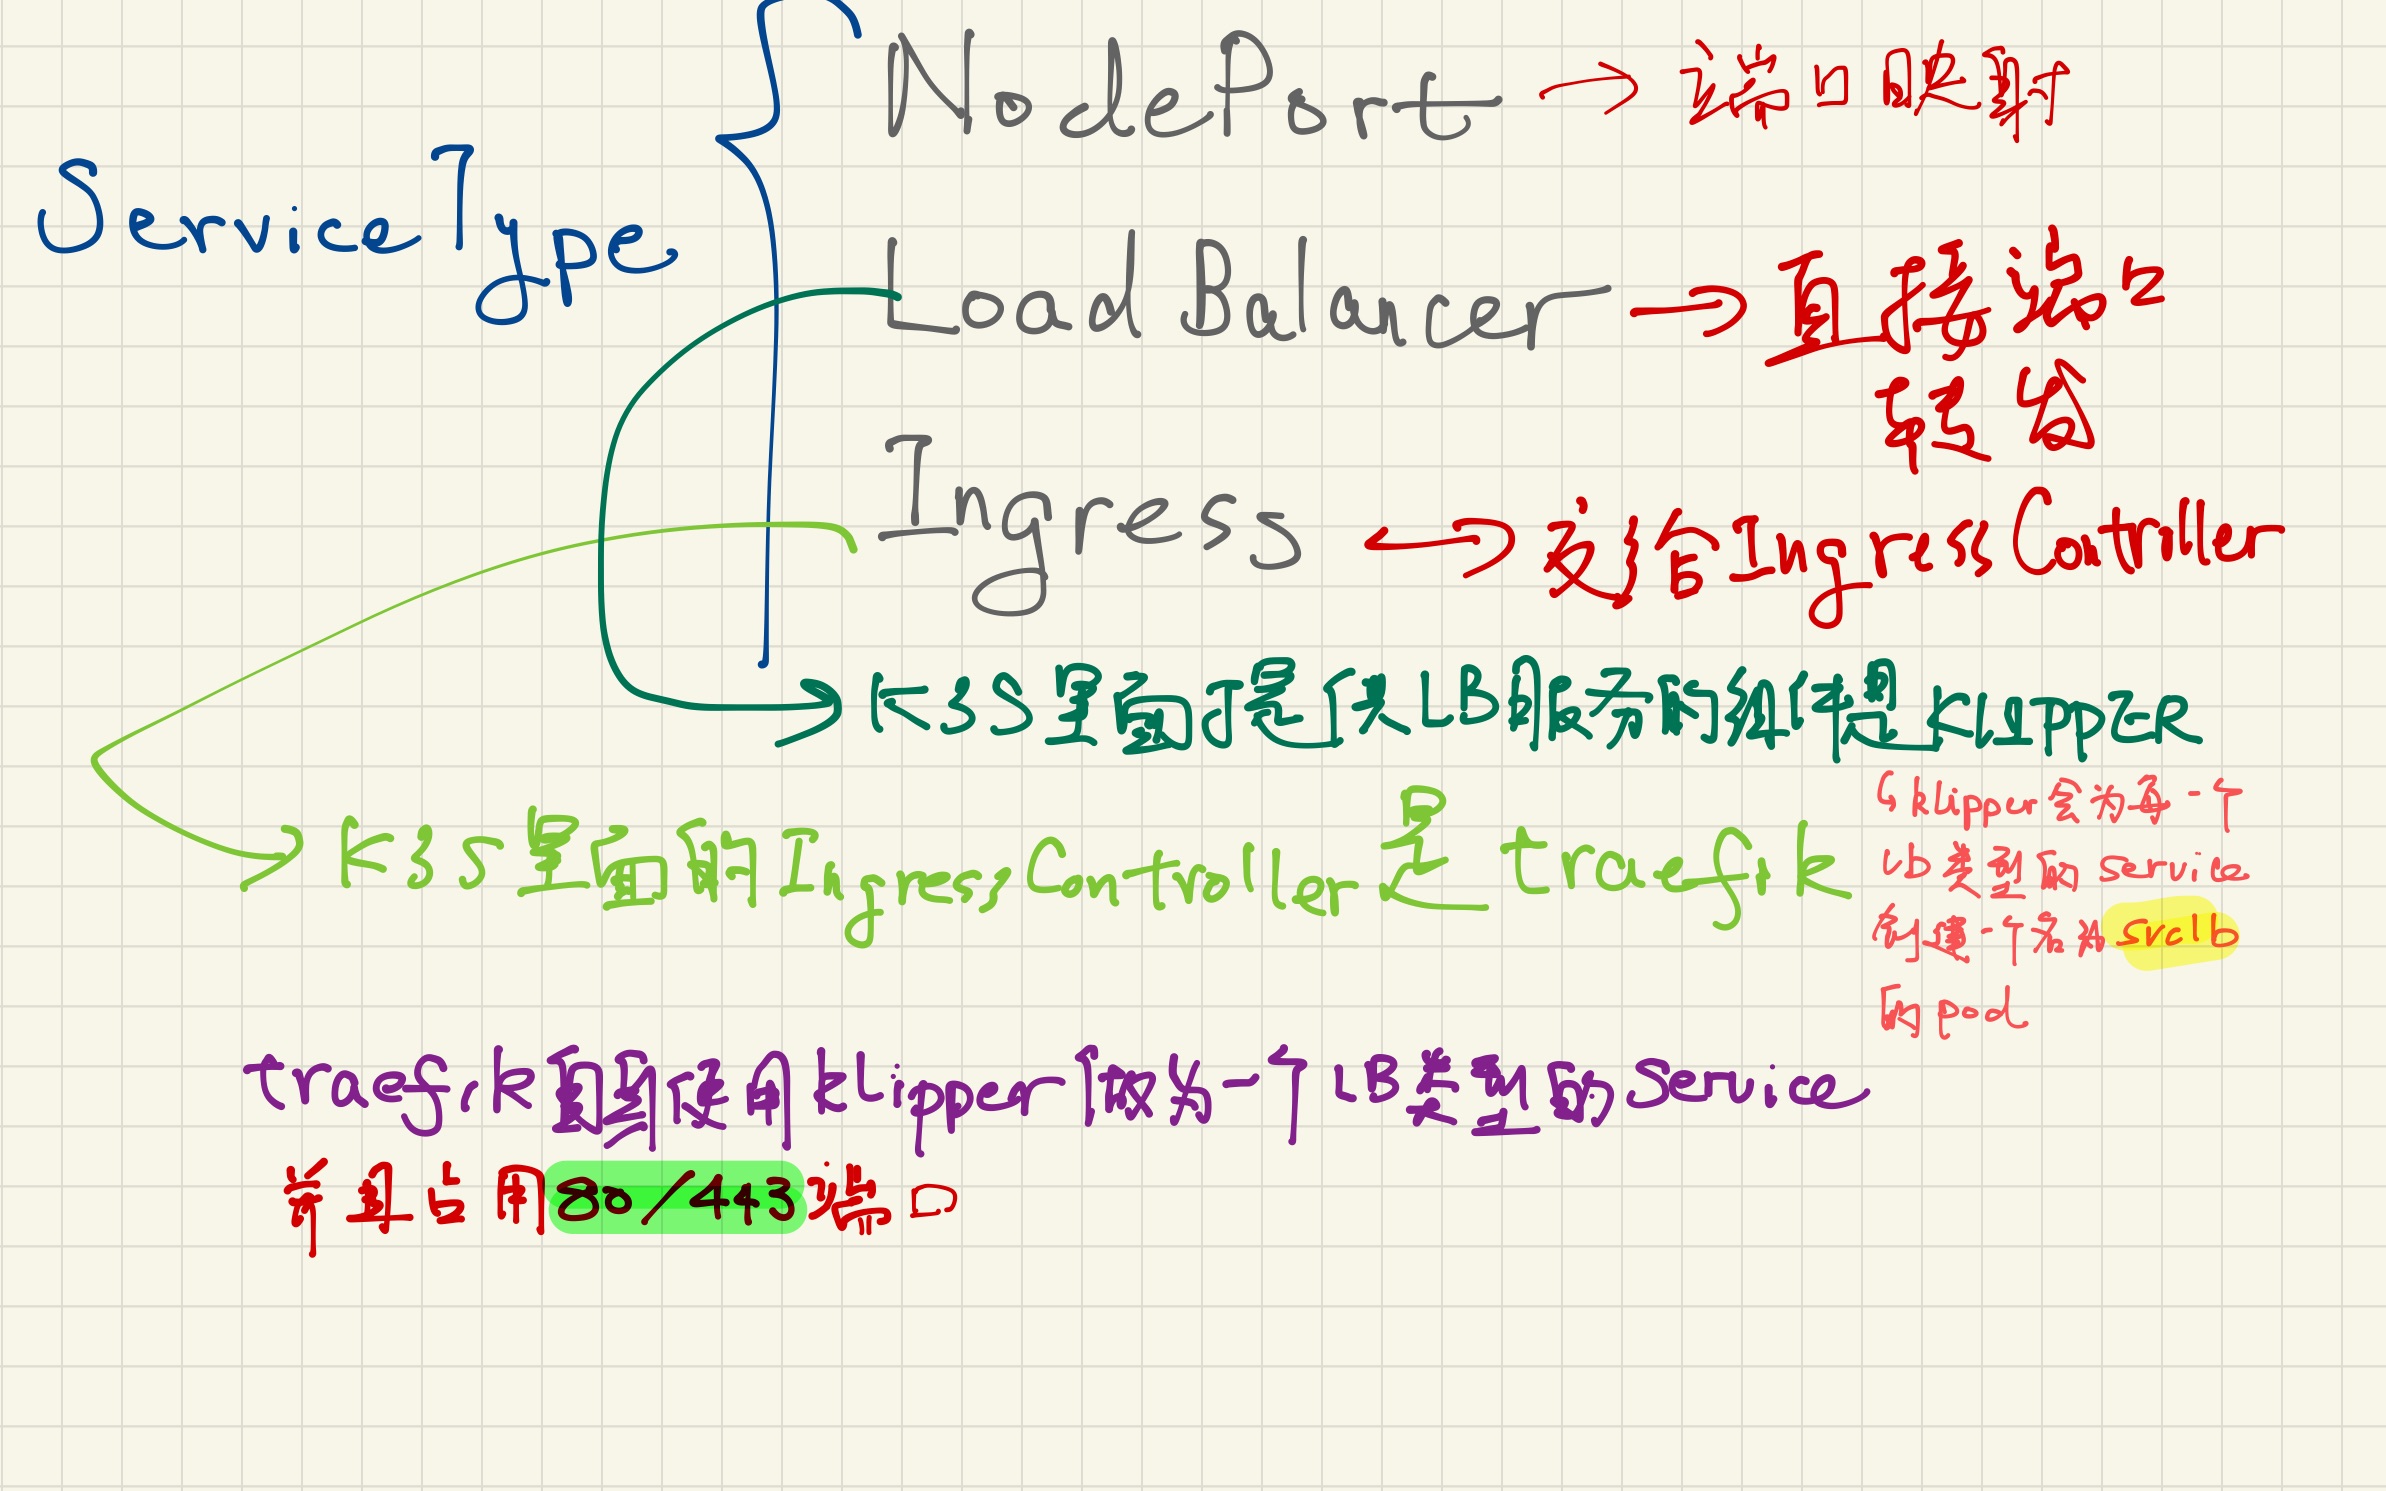 NodePort → 端口映射
ServiceType
LoadBalancer → 直接端口
转发
Ingress → 交给IngressController
K3S里面提供LB服务的组件是KLIPPER
klipper会为每一个
K3S里面的IngressController是 traefik
lb类型的 service
创建一个名为 svclb
的pod
traefik 使用klipper 做为一个LB类型的Service
并且占用80/443端口